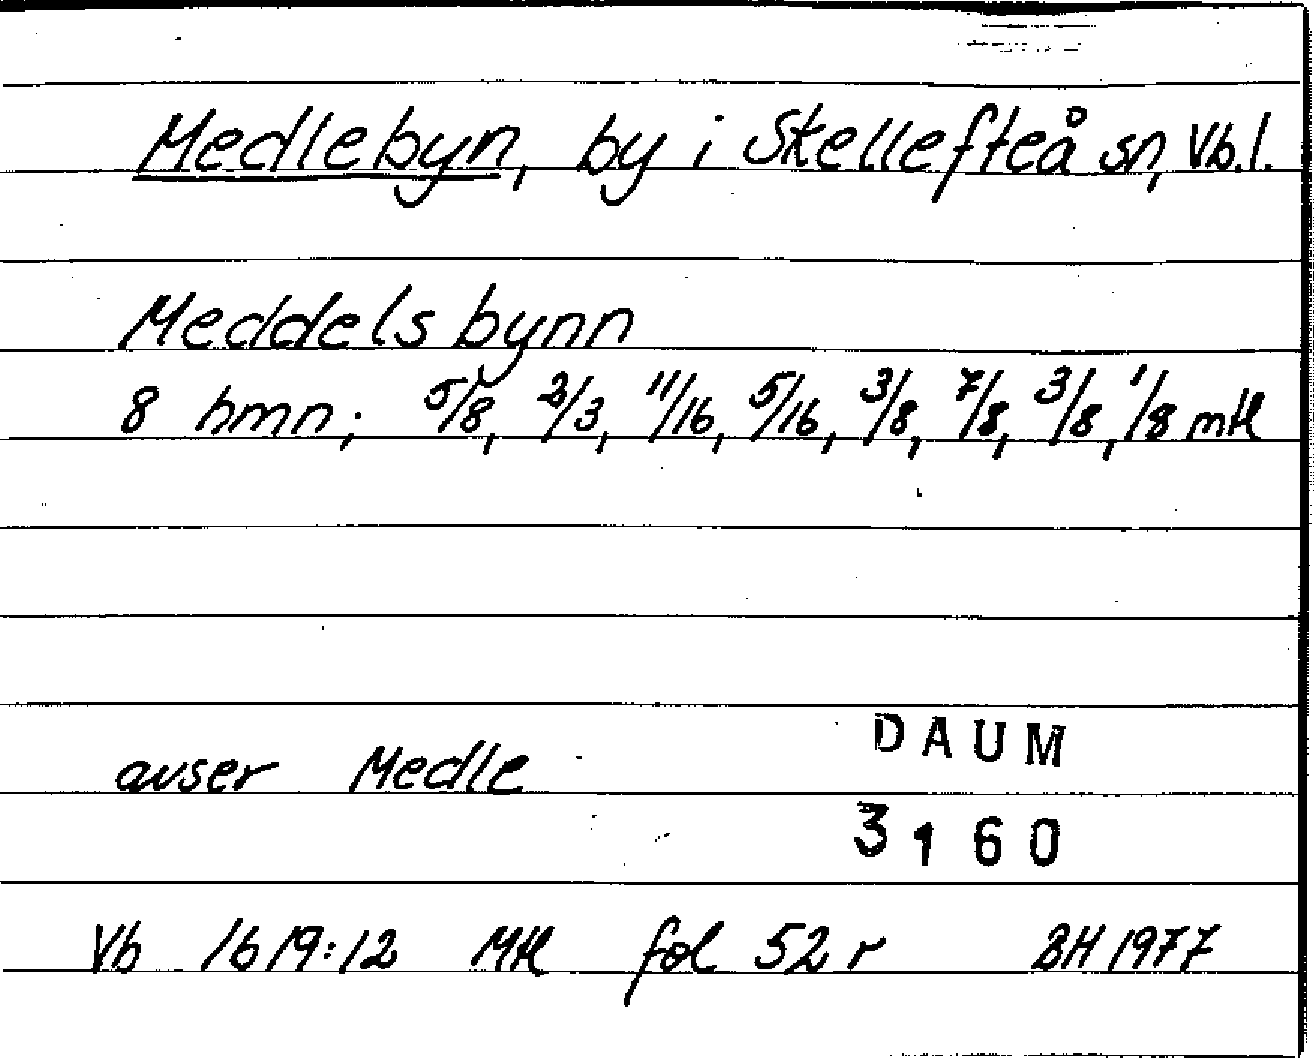 Medlebyn, by i Skellefteå sn, Vb.l.
Meddels bynn
8 hmn; 5/8, 2/3, 11/16, 5/16, 3/8, 7/8, 3/8, 1/8 mtl
DAUM
avser Medle
3160
Vb 1619:12 Mtl fol 52 r BH 1977